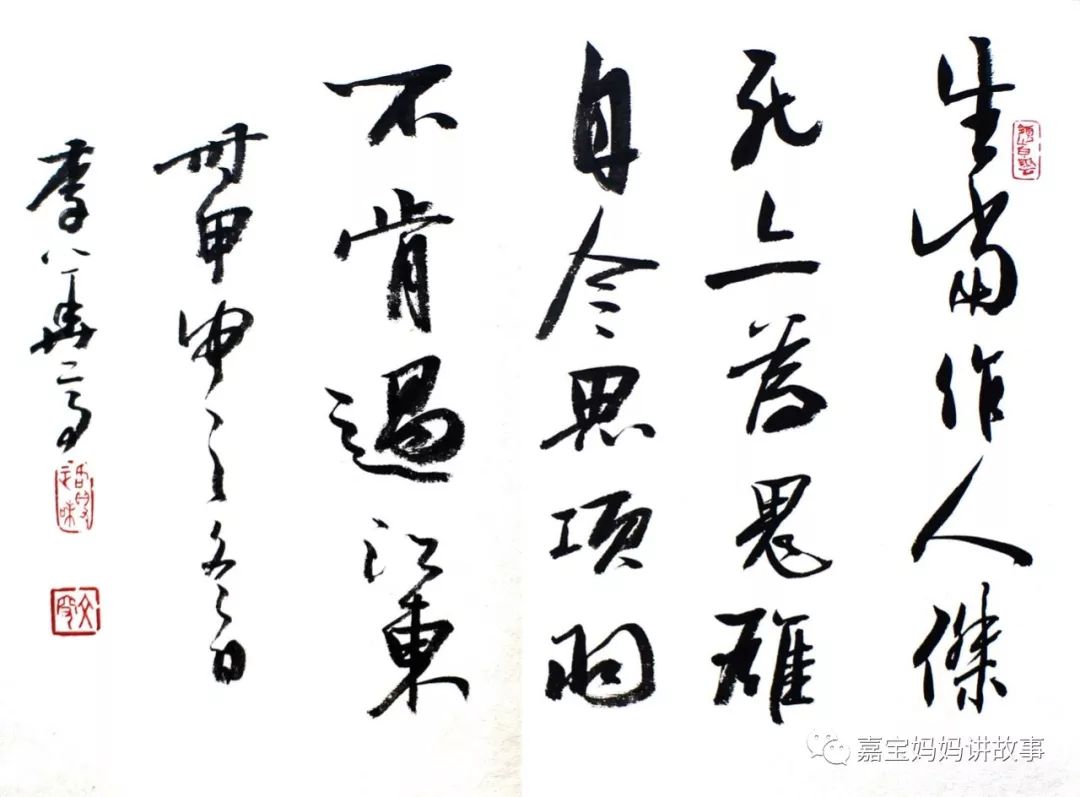 生當作人傑
死上為鬼雄
自今思項羽
不肯過江東
甲申之冬日
李
嘉宝妈妈讲故事